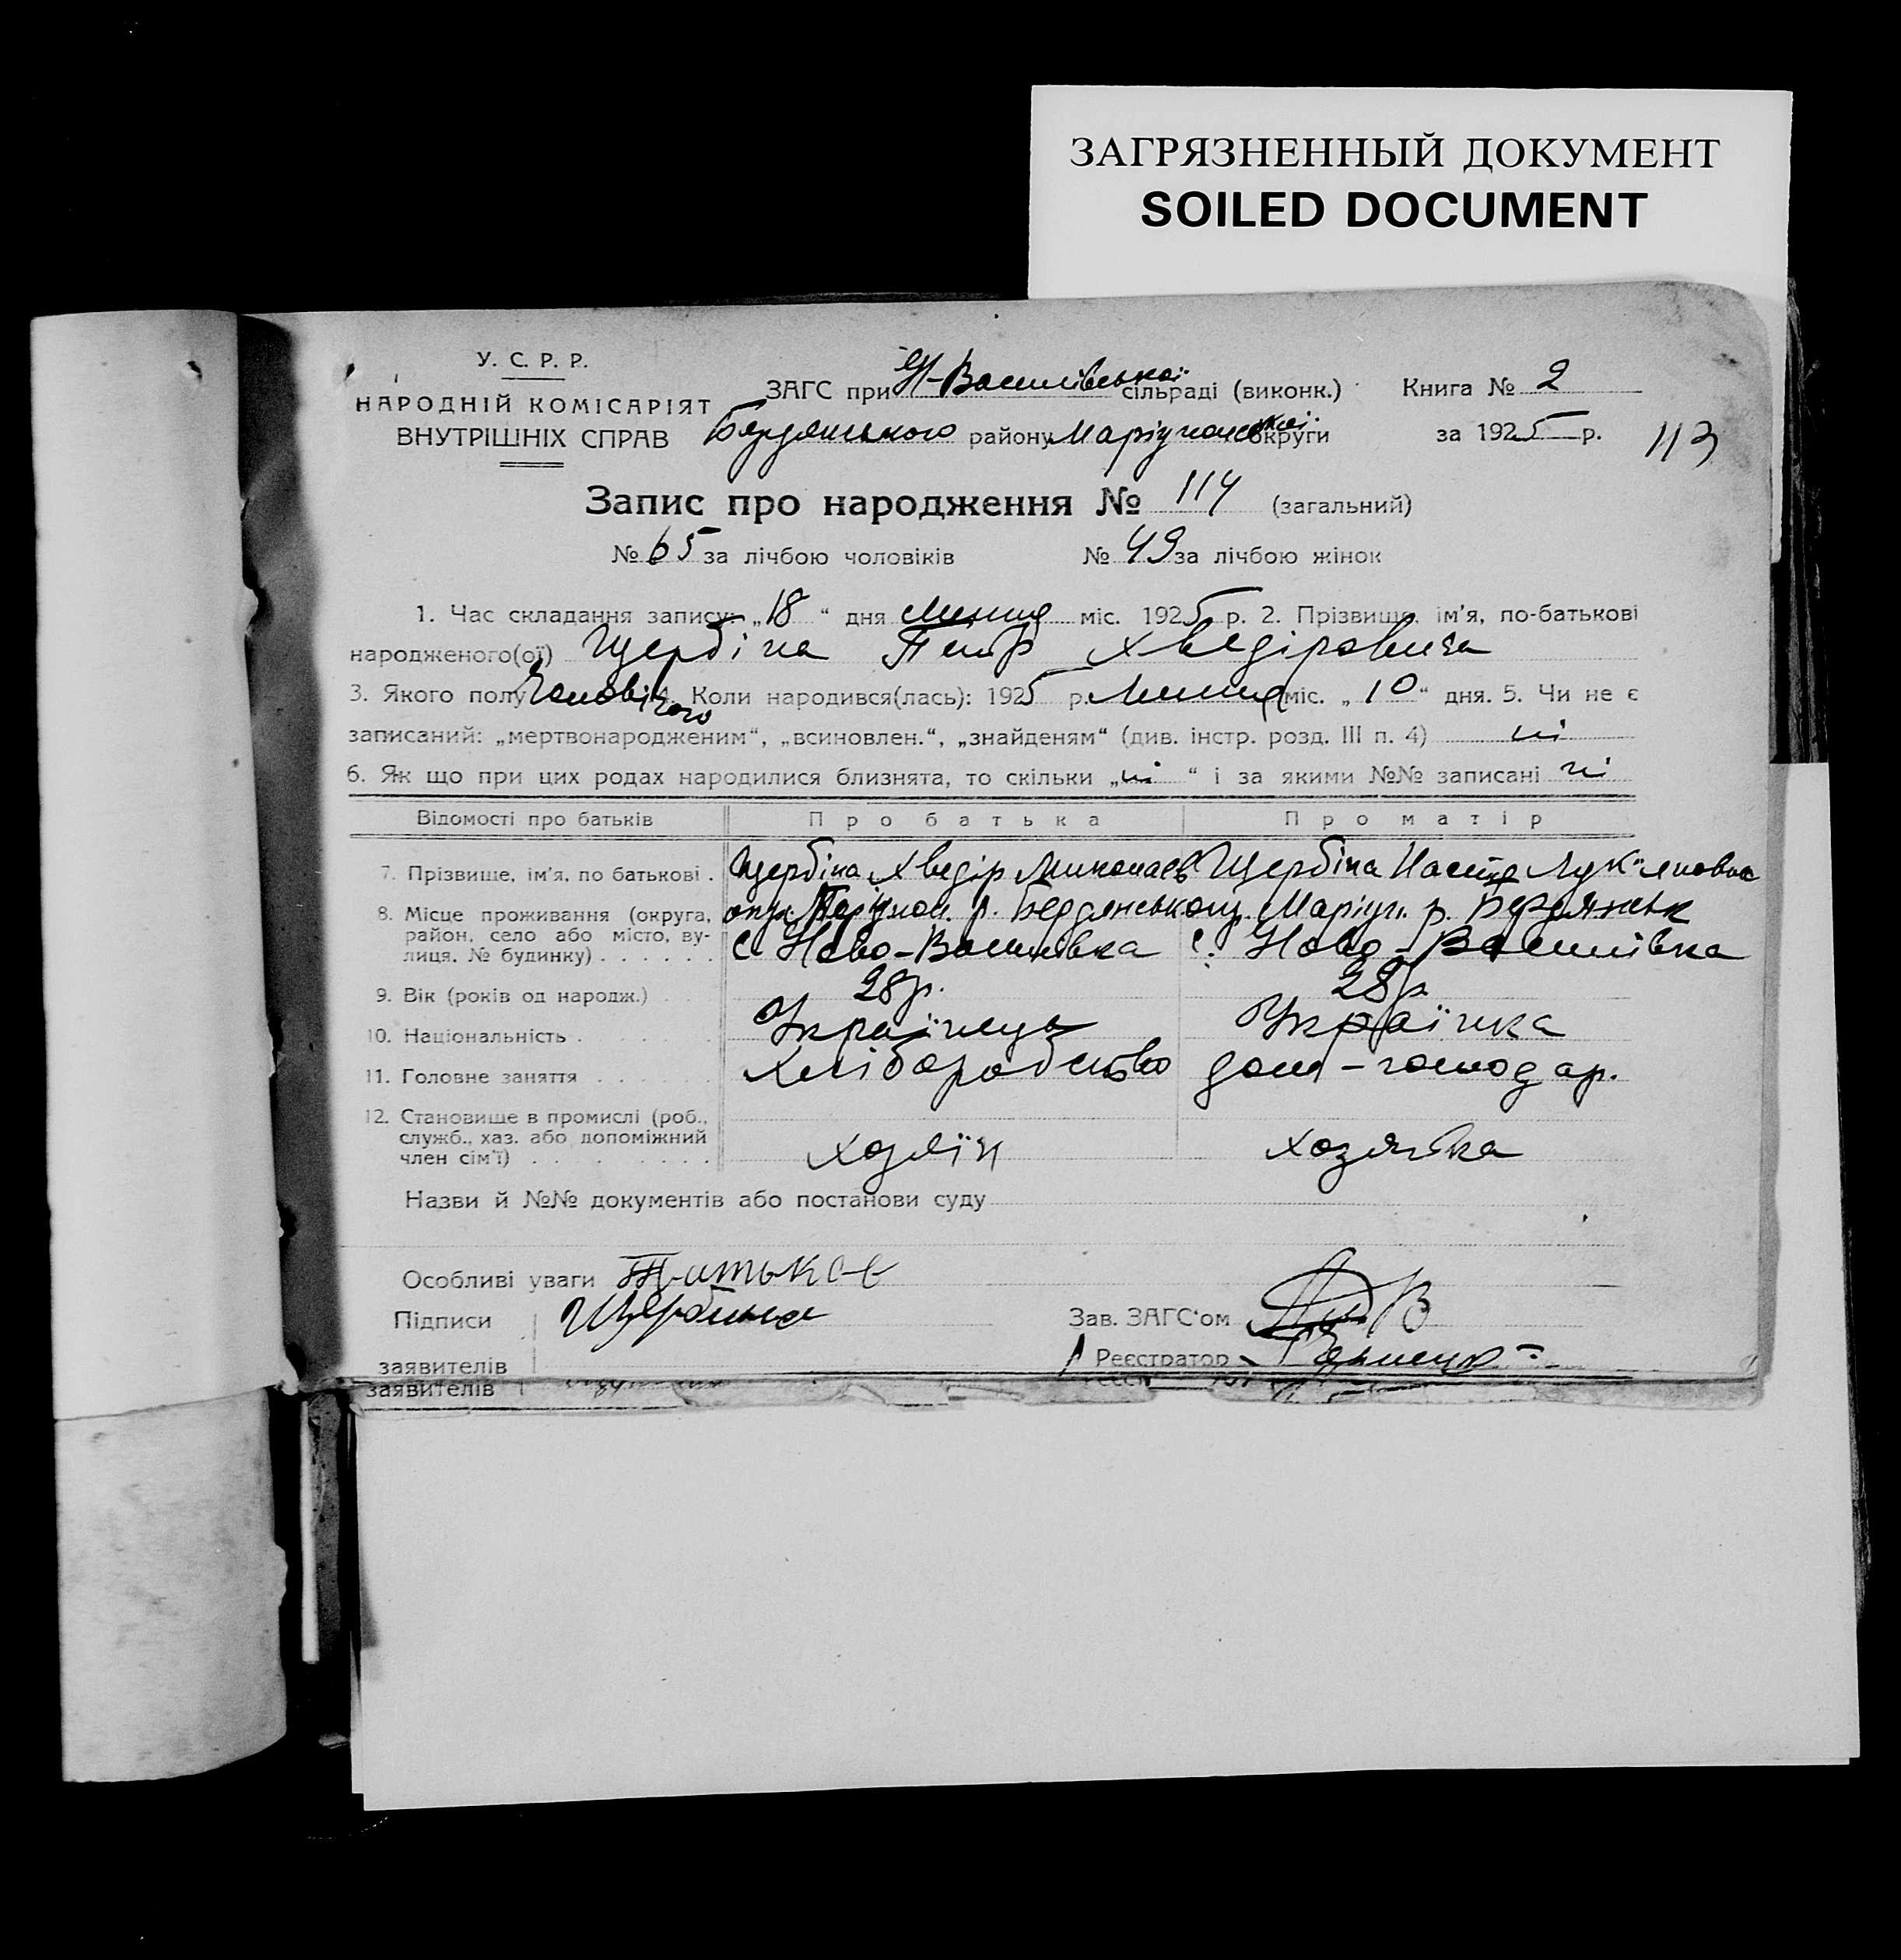 ЗАГРЯЗНЕННЫЙ ДОКУМЕНТ
SOILED DOCUMENT
У. С. Р. Р.
НАРОДНІЙ КОМІСАРІЯТ
ВНУТРІШНІХ СПРАВ
ЗАГС при Н-Василівській сільраді (виконк.) Книга № 2
Бердянського району Маріупольської округи за 1925 р. 113
Запис про народження № 114 (загальний)
№ 65 за лічбою чоловіків № 49 за лічбою жінок
1. Час складання запису: „18“ дня Липця міс. 1925 р. 2. Прізвище, ім'я, по-батькові
народженого(ої) Щербіна Петр Хведірович
3. Якого полу Чоловічого 4. Коли народився(лась): 1925 р. Липця міс. „10“ дня. 5. Чи не є
записаний: „мертвонародженим“, „всиновлен.“, „знайденям“ (див. інстр. розд. III п. 4) ні
6. Як що при цих родах народилися близнята, то скільки „ні“ і за якими №№ записані ні
Відомості про батьків Про батька Про матір
7. Прізвище, ім'я, по батькові . Щербіна Хведір Миколаєв Щербіна Настя Лук'яновна
8. Місце проживання (округа, район, село або місто, вулиця, № будинку) . . . . . . р. Бердянського Маріуп. р. Бердянськ
с Ново-Василівка с. Ново-Василівка
9. Вік (років од народж.) . 28 р. 28 р.
10. Національність . . . . . . Українець Українка
11. Головне заняття . . . . . . Хліборобство дом-господар.
12. Становище в промислі (роб., служб., хаз. або допоміжний член сім'ї) . . . . . . . хозяїн хозяйка
Назви й №№ документів або постанови суду
Особливі уваги
Підписи Щербина Зав. ЗАГС'ом
заявителів Реєстратор
заявителів